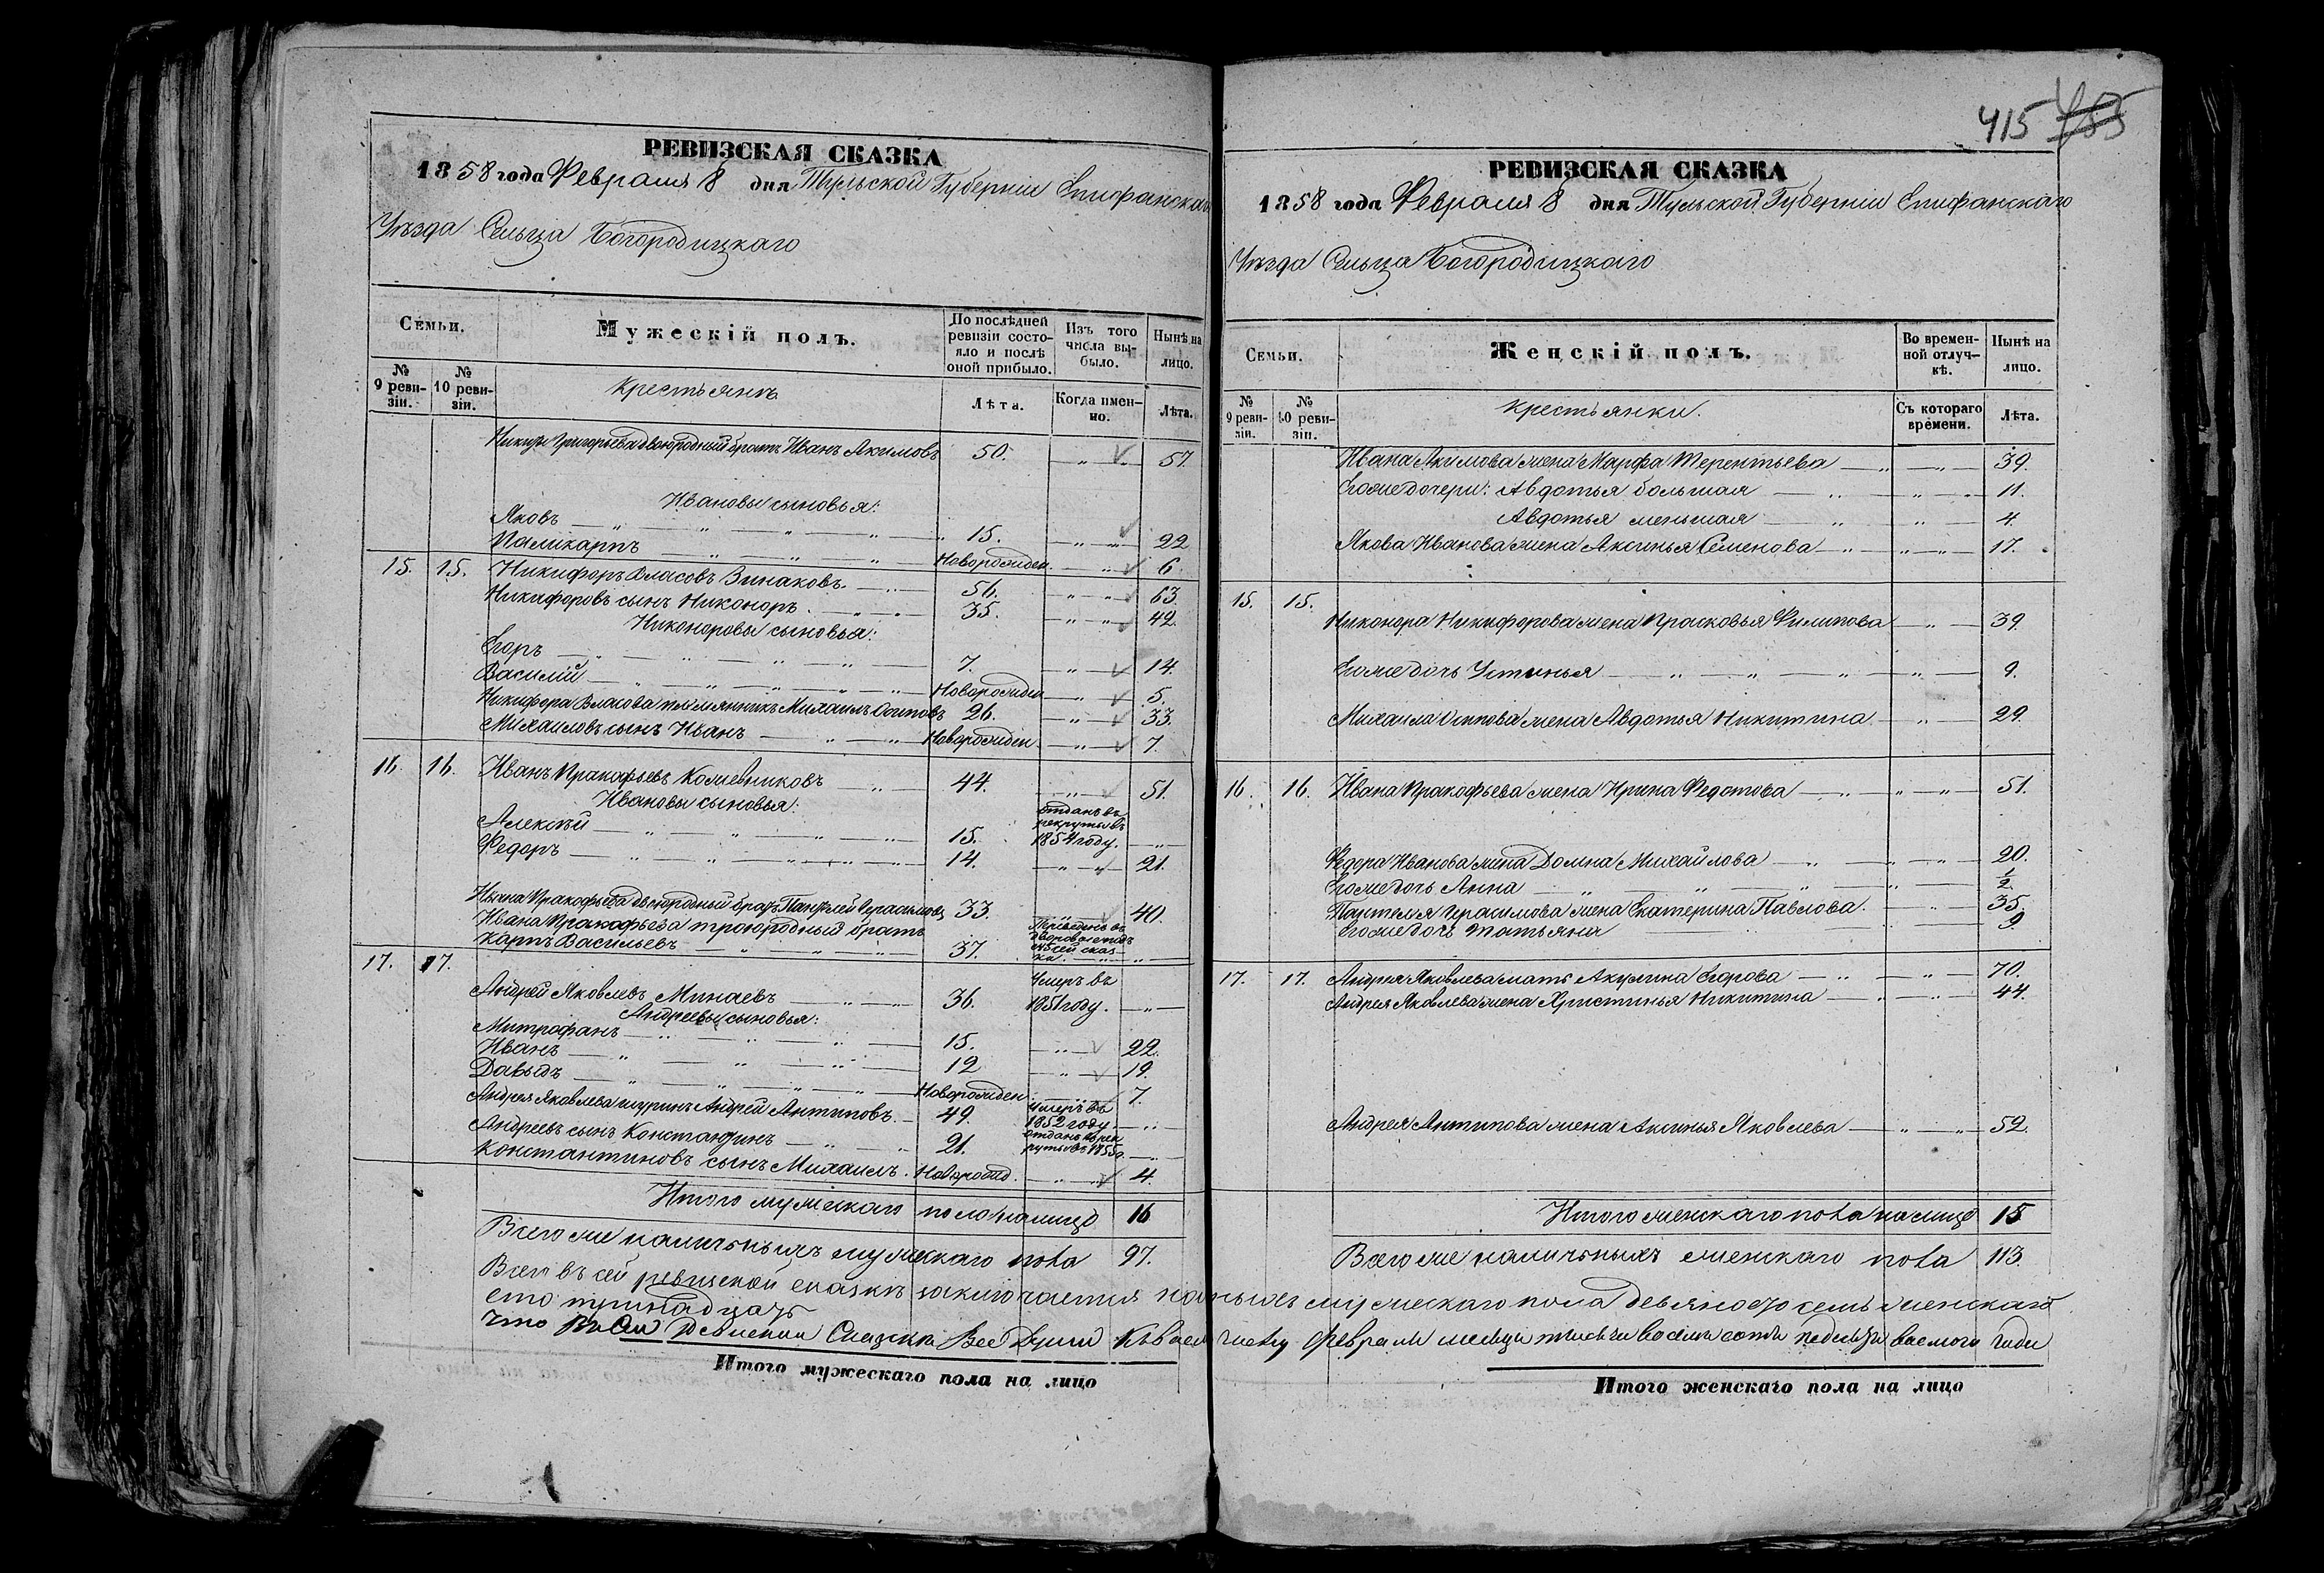 РЕВИЗСКАЯ СКАЗКА
1858 года Февраля 8 дня Тульской Губерніи Епифанскаго
Уѣзда Сельца Богородицкаго
Семьи.
Мужескій полъ.
По послѣдней ревизіи состояло и послѣ оной прибыло.
Изъ того числа выбыло.
Нынѣ на лицо.
№ 9 ревизіи.
№ 10 ревизіи.
Крестьянъ
Лѣта.
Когда именно.
Лѣта.
Никиты Григорьева двоюродный братъ Иванъ Акимовъ 50. 57
Ивановы сыновья:
Яковъ 15. 22
Паликарпъ Новорожден. 6.
15. 15. Никифоръ Власовъ Зинаковъ. 56. 63
Никифоровъ сынъ Никоноръ. 35. 42.
Никоноровы сыновья:
Егоръ 7. 14.
Василій Новорожден 5.
Никифора Власова племянникъ Михаилъ Осиповъ 26. 33.
Михаиловъ сынъ Иванъ Новорожден. 7.
16. 16. Иванъ Пракофьевъ Кожевниковъ 44. 51.
Ивановы сыновья:
Алексѣй 15. отданъ въ рекруты въ 1854 году.
Федоръ 14. 21.
Ивана Пракофьева двоюродный братъ Пантелей Герасимовъ 33. 40.
Ивана Пракофьева троюродный братъ
Карпъ Васильевъ 37. Переведенъ въ дворовые сей сказки.
17. 17. Андрей Яковлевъ Минаевъ 36. Умеръ въ 1851 году.
Андреевы сыновья:
Митрофанъ 15. 22.
Иванъ 12 19.
Давыдъ Новорожден 7.
Андрея Яковлева шуринъ Андрей Антиповъ. 49. Умеръ въ 1852 году.
Андреевъ сынъ Константинъ 21. отданъ въ рекруты въ 1855 г.
Константиновъ сынъ Михаилъ. Новорожд. 4.
Итого мужескаго пола налицо 16
Всего же наличныхъ мужескаго пола 97.
Итого мужескаго пола на лицо
415 455
РЕВИЗСКАЯ СКАЗКА
1858 года Февраля 8 дня Тульской Губерніи Епифанскаго
Уѣзда Сельца Богородицкаго
Семьи.
Женскій полъ.
Во временной отлучкѣ.
Нынѣ на лицо.
№ 9 ревизіи.
№ 10 ревизіи.
Крестьянки.
Съ котораго времени.
Лѣта.
Ивана Акимова жена Марфа Терентьева 39.
Егоже дочери: Авдотья большая 11.
Авдотья меньшая 4.
Якова Иванова жена Аксинья Семенова 17.
15. 15.
Никонора Никифорова жена Прасковья Филипова 39.
Егоже дочь Устинья 9.
Михаила Осипова жена Авдотья Никитина 29.
16. 16. Ивана Пракофьева жена Ирина Федотова 51.
Федора Иванова жена Домна Михайлова 20.
Егоже дочь Анна 1/2.
Пантелея Герасимова жена Екатерина Павлова. 35.
Егоже дочь Татьяна 9.
17. 17. Андрея Яковлева мать Акулина Егорова 70.
Андрея Яковлева жена Христинья Никитина 44.
Андрея Антипова жена Аксинья Яковлева 52.
Итого женскаго пола налицо 15
Всего же наличныхъ женскаго пола 113.
Всего въ сей ревизской сказкѣ заключается наличныхъ мужескаго пола девяносто семь женскаго
сто тринадцать
Что Ревизкой Сказки Все Души Февраля месяца тысяча восемь сотъ года
Итого женскаго пола на лицо